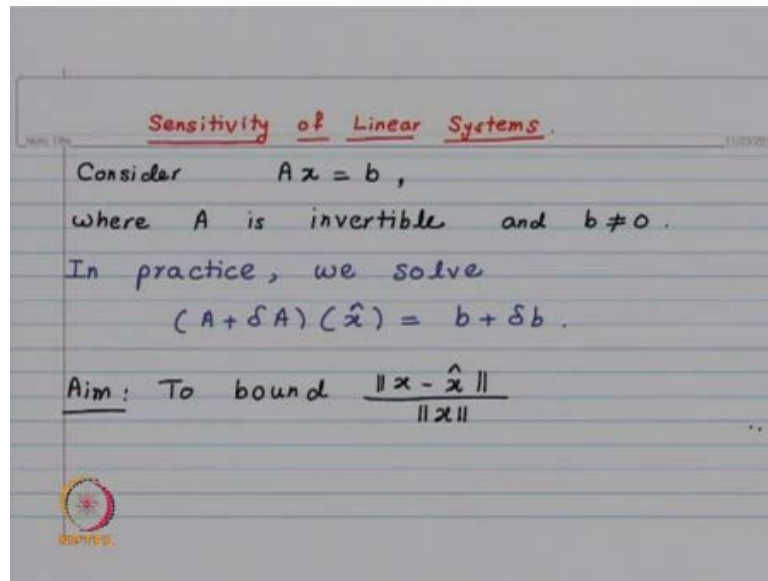 Sensitivity of Linear Systems.
Note Title
Consider Ax = b,
where A is invertible and b ≠ 0.
In practice, we solve
(A + δA)(x̂) = b + δb.
Aim: To bound ‖x - x̂‖ / ‖x‖